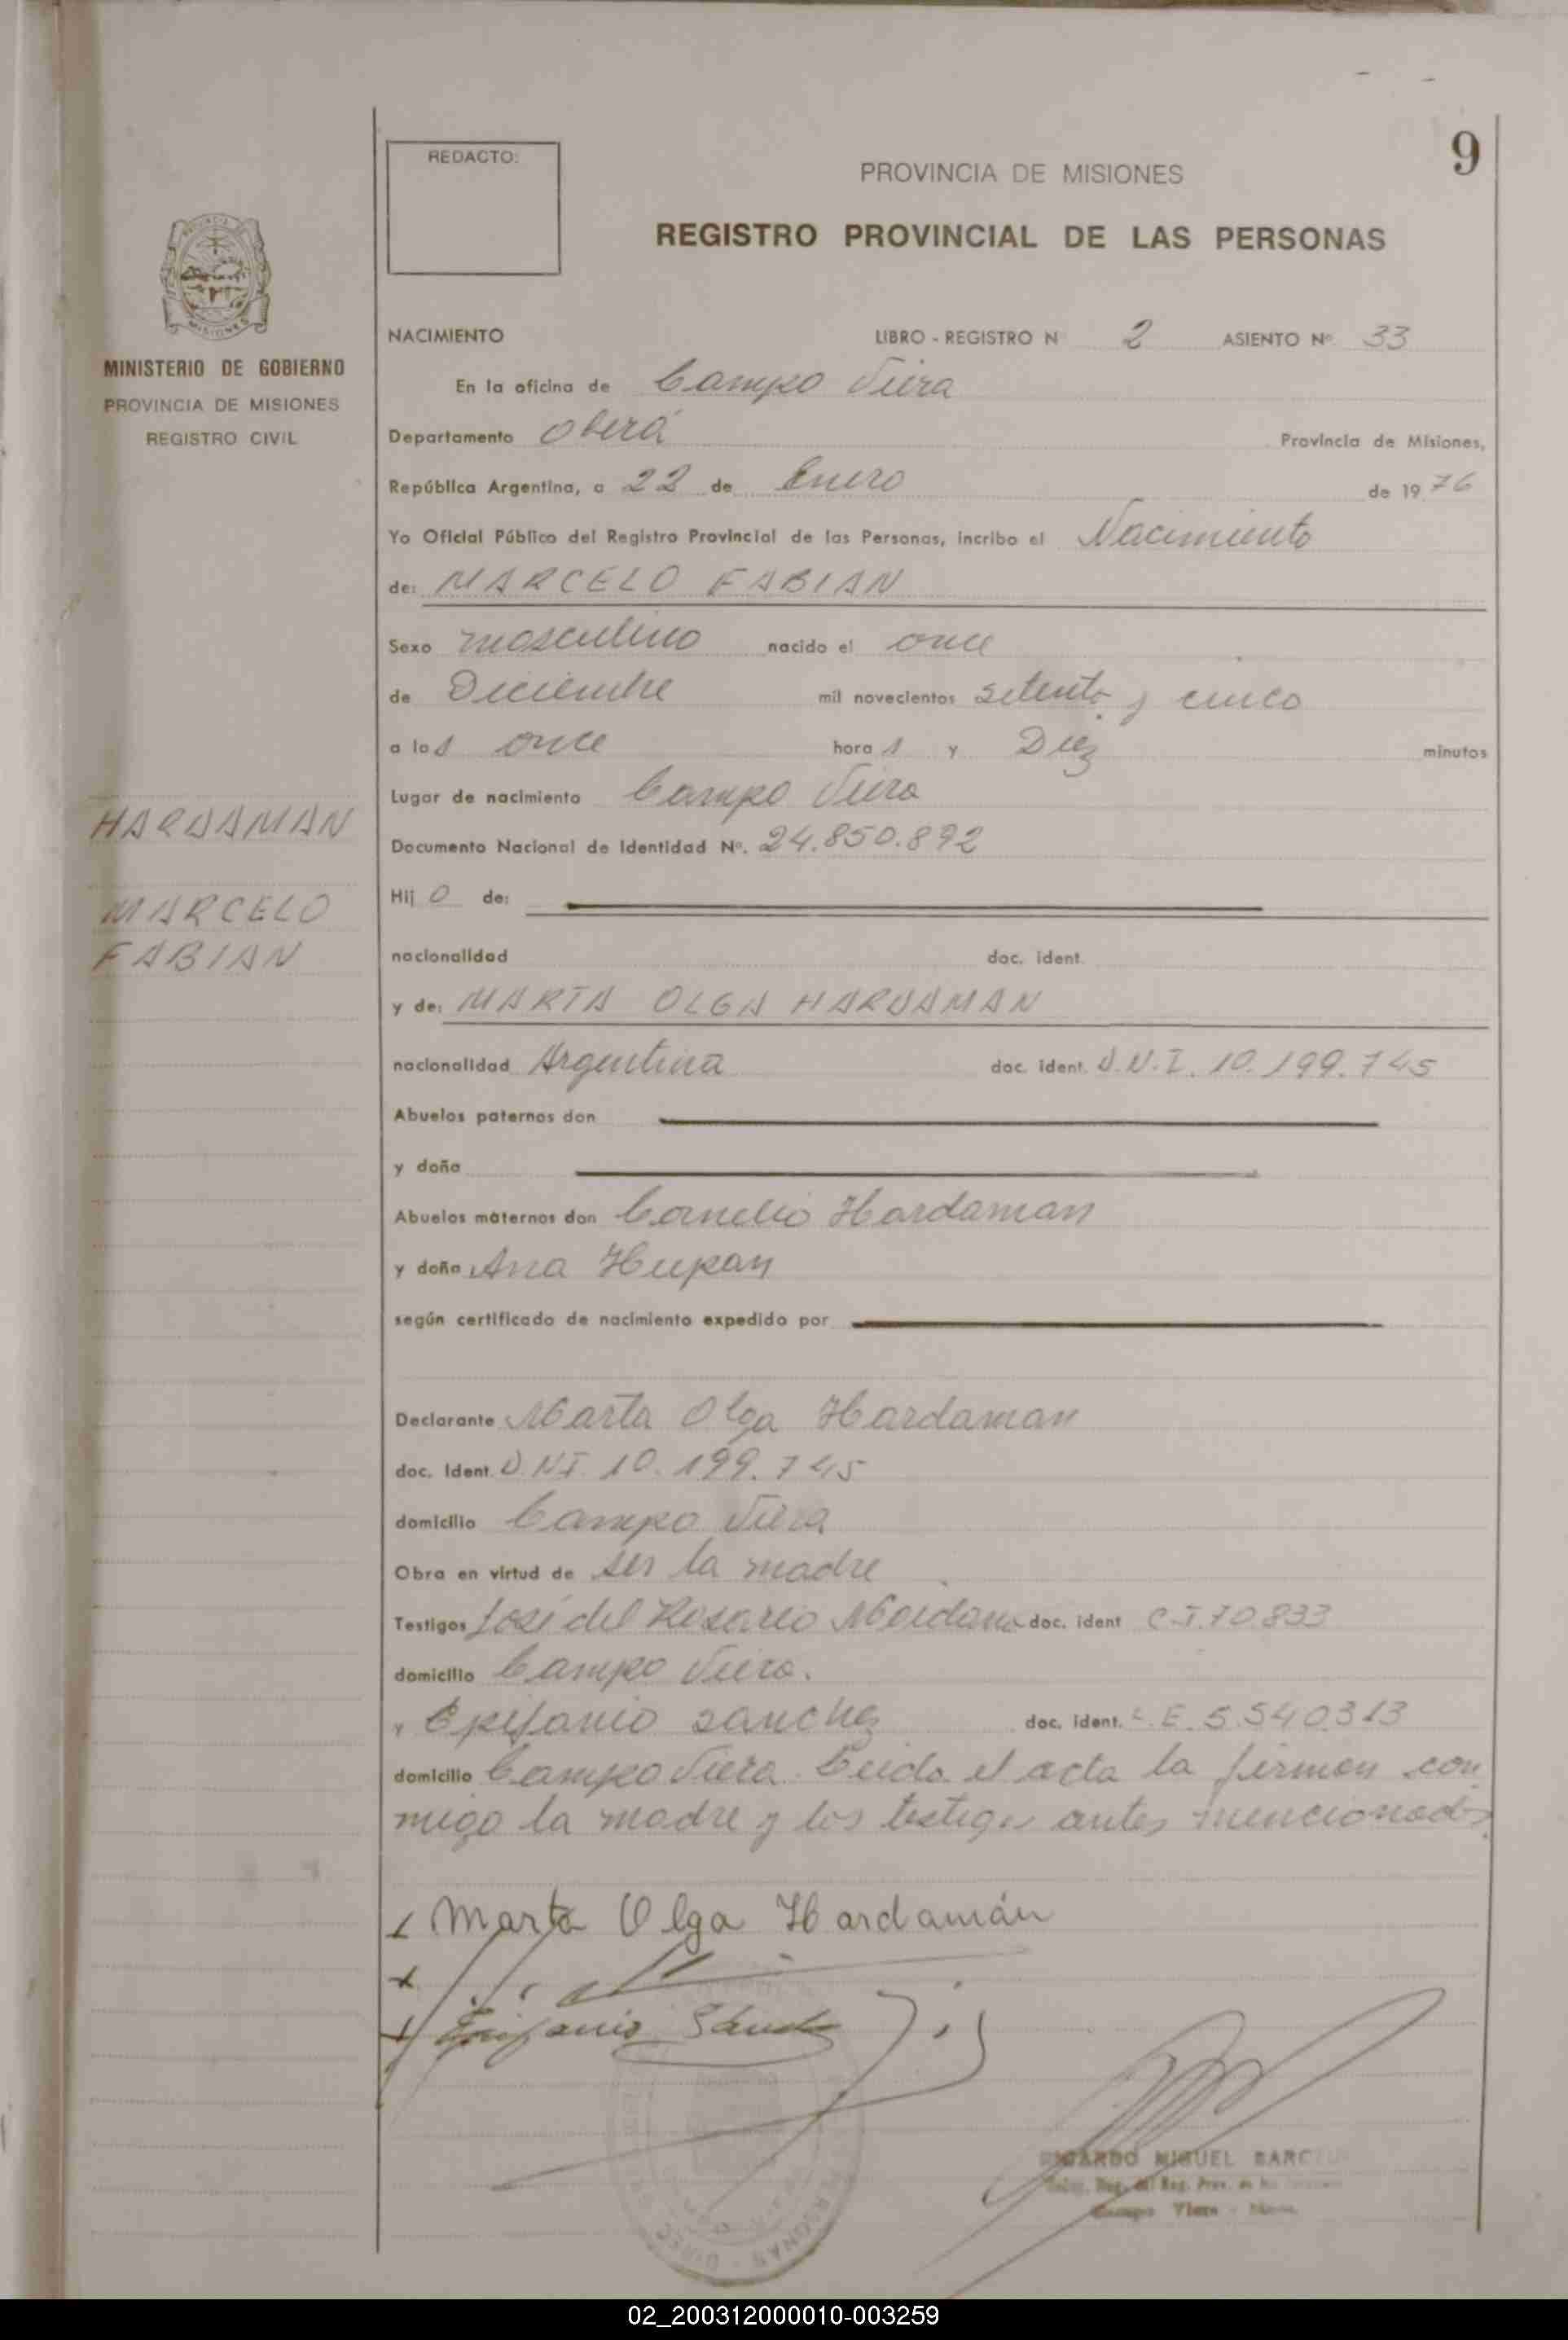 9
REDACTO:
PROVINCIA DE MISIONES
REGISTRO PROVINCIAL DE LAS PERSONAS
MISIONES
MINISTERIO DE GOBIERNO
PROVINCIA DE MISIONES
REGISTRO CIVIL
NACIMIENTO LIBRO - REGISTRO N 2 ASIENTO Nº 33
En la oficina de Campo Viera
Departamento Oberá Provincia de Misiones,
República Argentina, a 22 de Enero de 1976
Yo Oficial Público del Registro Provincial de las Personas, incribo el Nacimiento
de: MARCELO FABIAN
Sexo masculino nacido el once
de Diciembre mil novecientos setenta y cinco
a las once horas y Diez minutos
Lugar de nacimiento Campo Viera
HARDAMAN
MARCELO
FABIAN
Documento Nacional de Identidad Nº. 24.850.892
Hijo de:
nacionalidad doc. ident.
y de: MARTA OLGA HARDAMAN
nacionalidad Argentina doc. ident. D.N.I. 10.199.745
Abuelos paternos don
y doña
Abuelos maternos don Cornelio Hardaman
y doña Ana Hupan
según certificado de nacimiento expedido por
Declarante Marta Olga Hardaman
doc. Ident. D.N.I. 10.199.745
domicilio Campo Viera
Obra en virtud de ser la madre
Testigos José del Rosario doc. ident C.I.70.833
domicilio Campo Viera.
y Epifanio Sanchez doc. ident. L.E. 5.540.313
domicilio Campo Viera. Leida el acta la firman con
migo la madre y los testigos antes mencionados
Marta Olga Hardamán
Epifanio Sánchez
RICARDO MIGUEL
Campo Viera
02_200312000010-003259